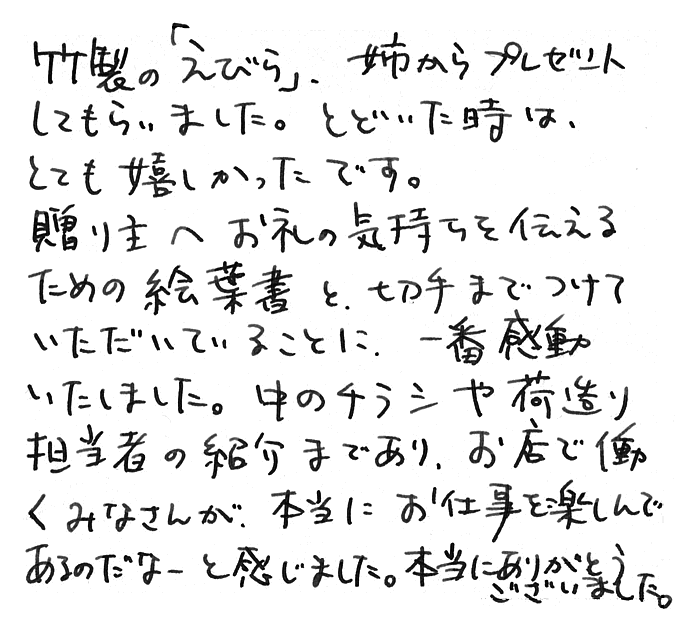 竹製の「えびら」、姉からプレゼント
してもらいました。とどいた時は、
とても嬉しかったです。
贈り主へお礼の気持ちを伝える
ための絵葉書と、切手までつけて
いただいていることに、一番感動
いたしました。中のチラシや荷造り
担当者の紹介まであり、お店で働
くみなさんが、本当にお仕事を楽しんで
あるのだなーと感じました。本当にありがとう
ございました。